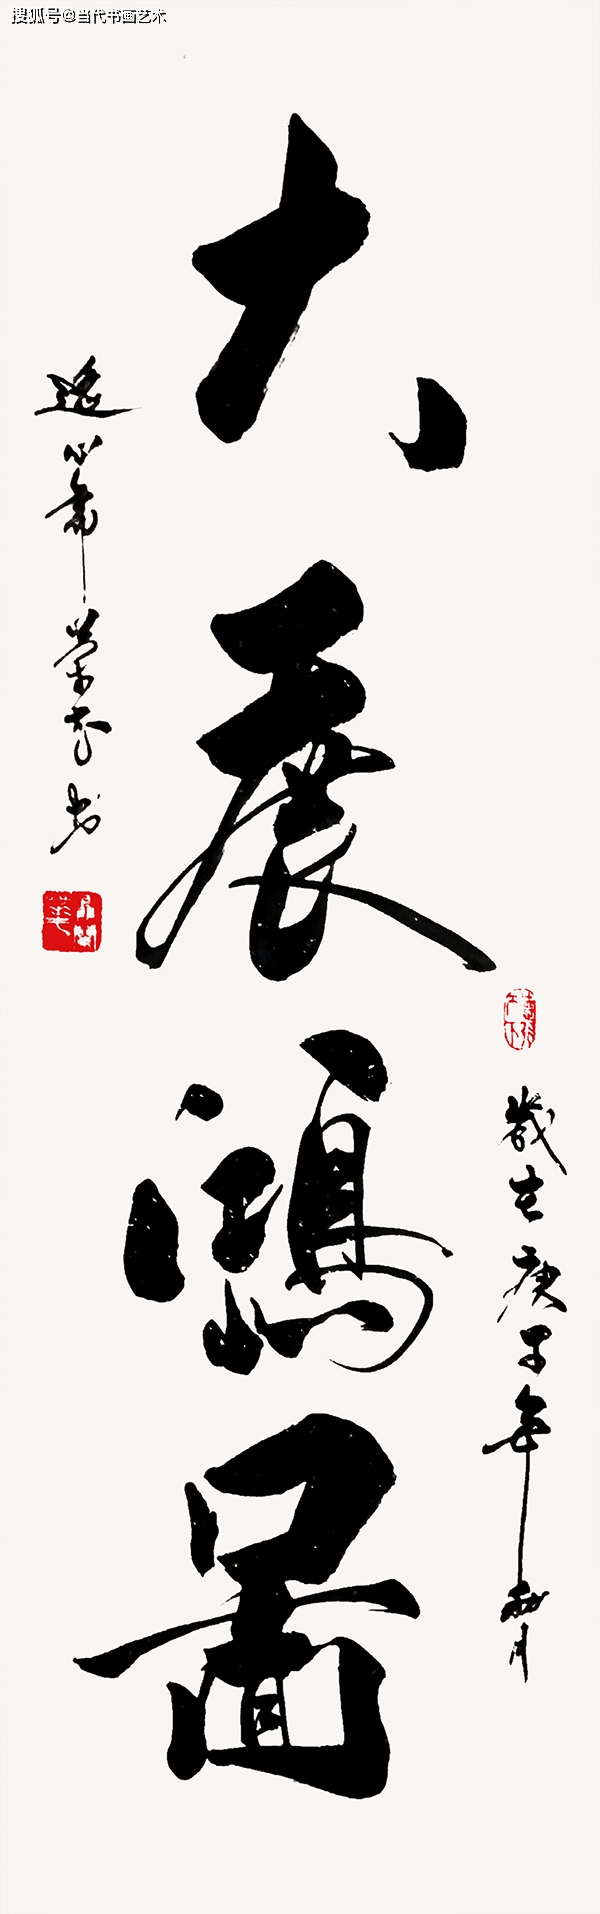 搜狐号@当代书画艺术
大展鸿图
岁在庚子年秋月
逸心斋 荣花书